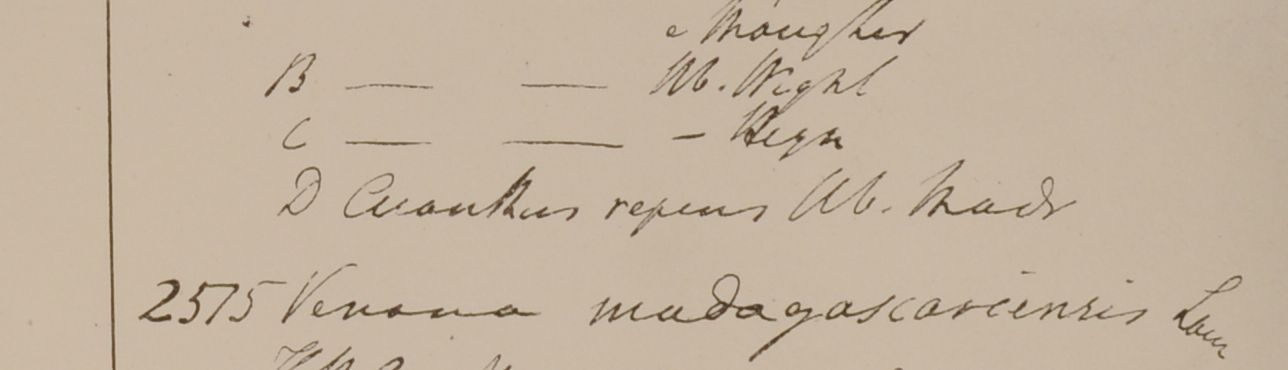 e Monghir
B — — Hb. Wight
C — — – Heyn
D Cuanthus repens Hb. Madr
2575 Venana madagascariensis Lam